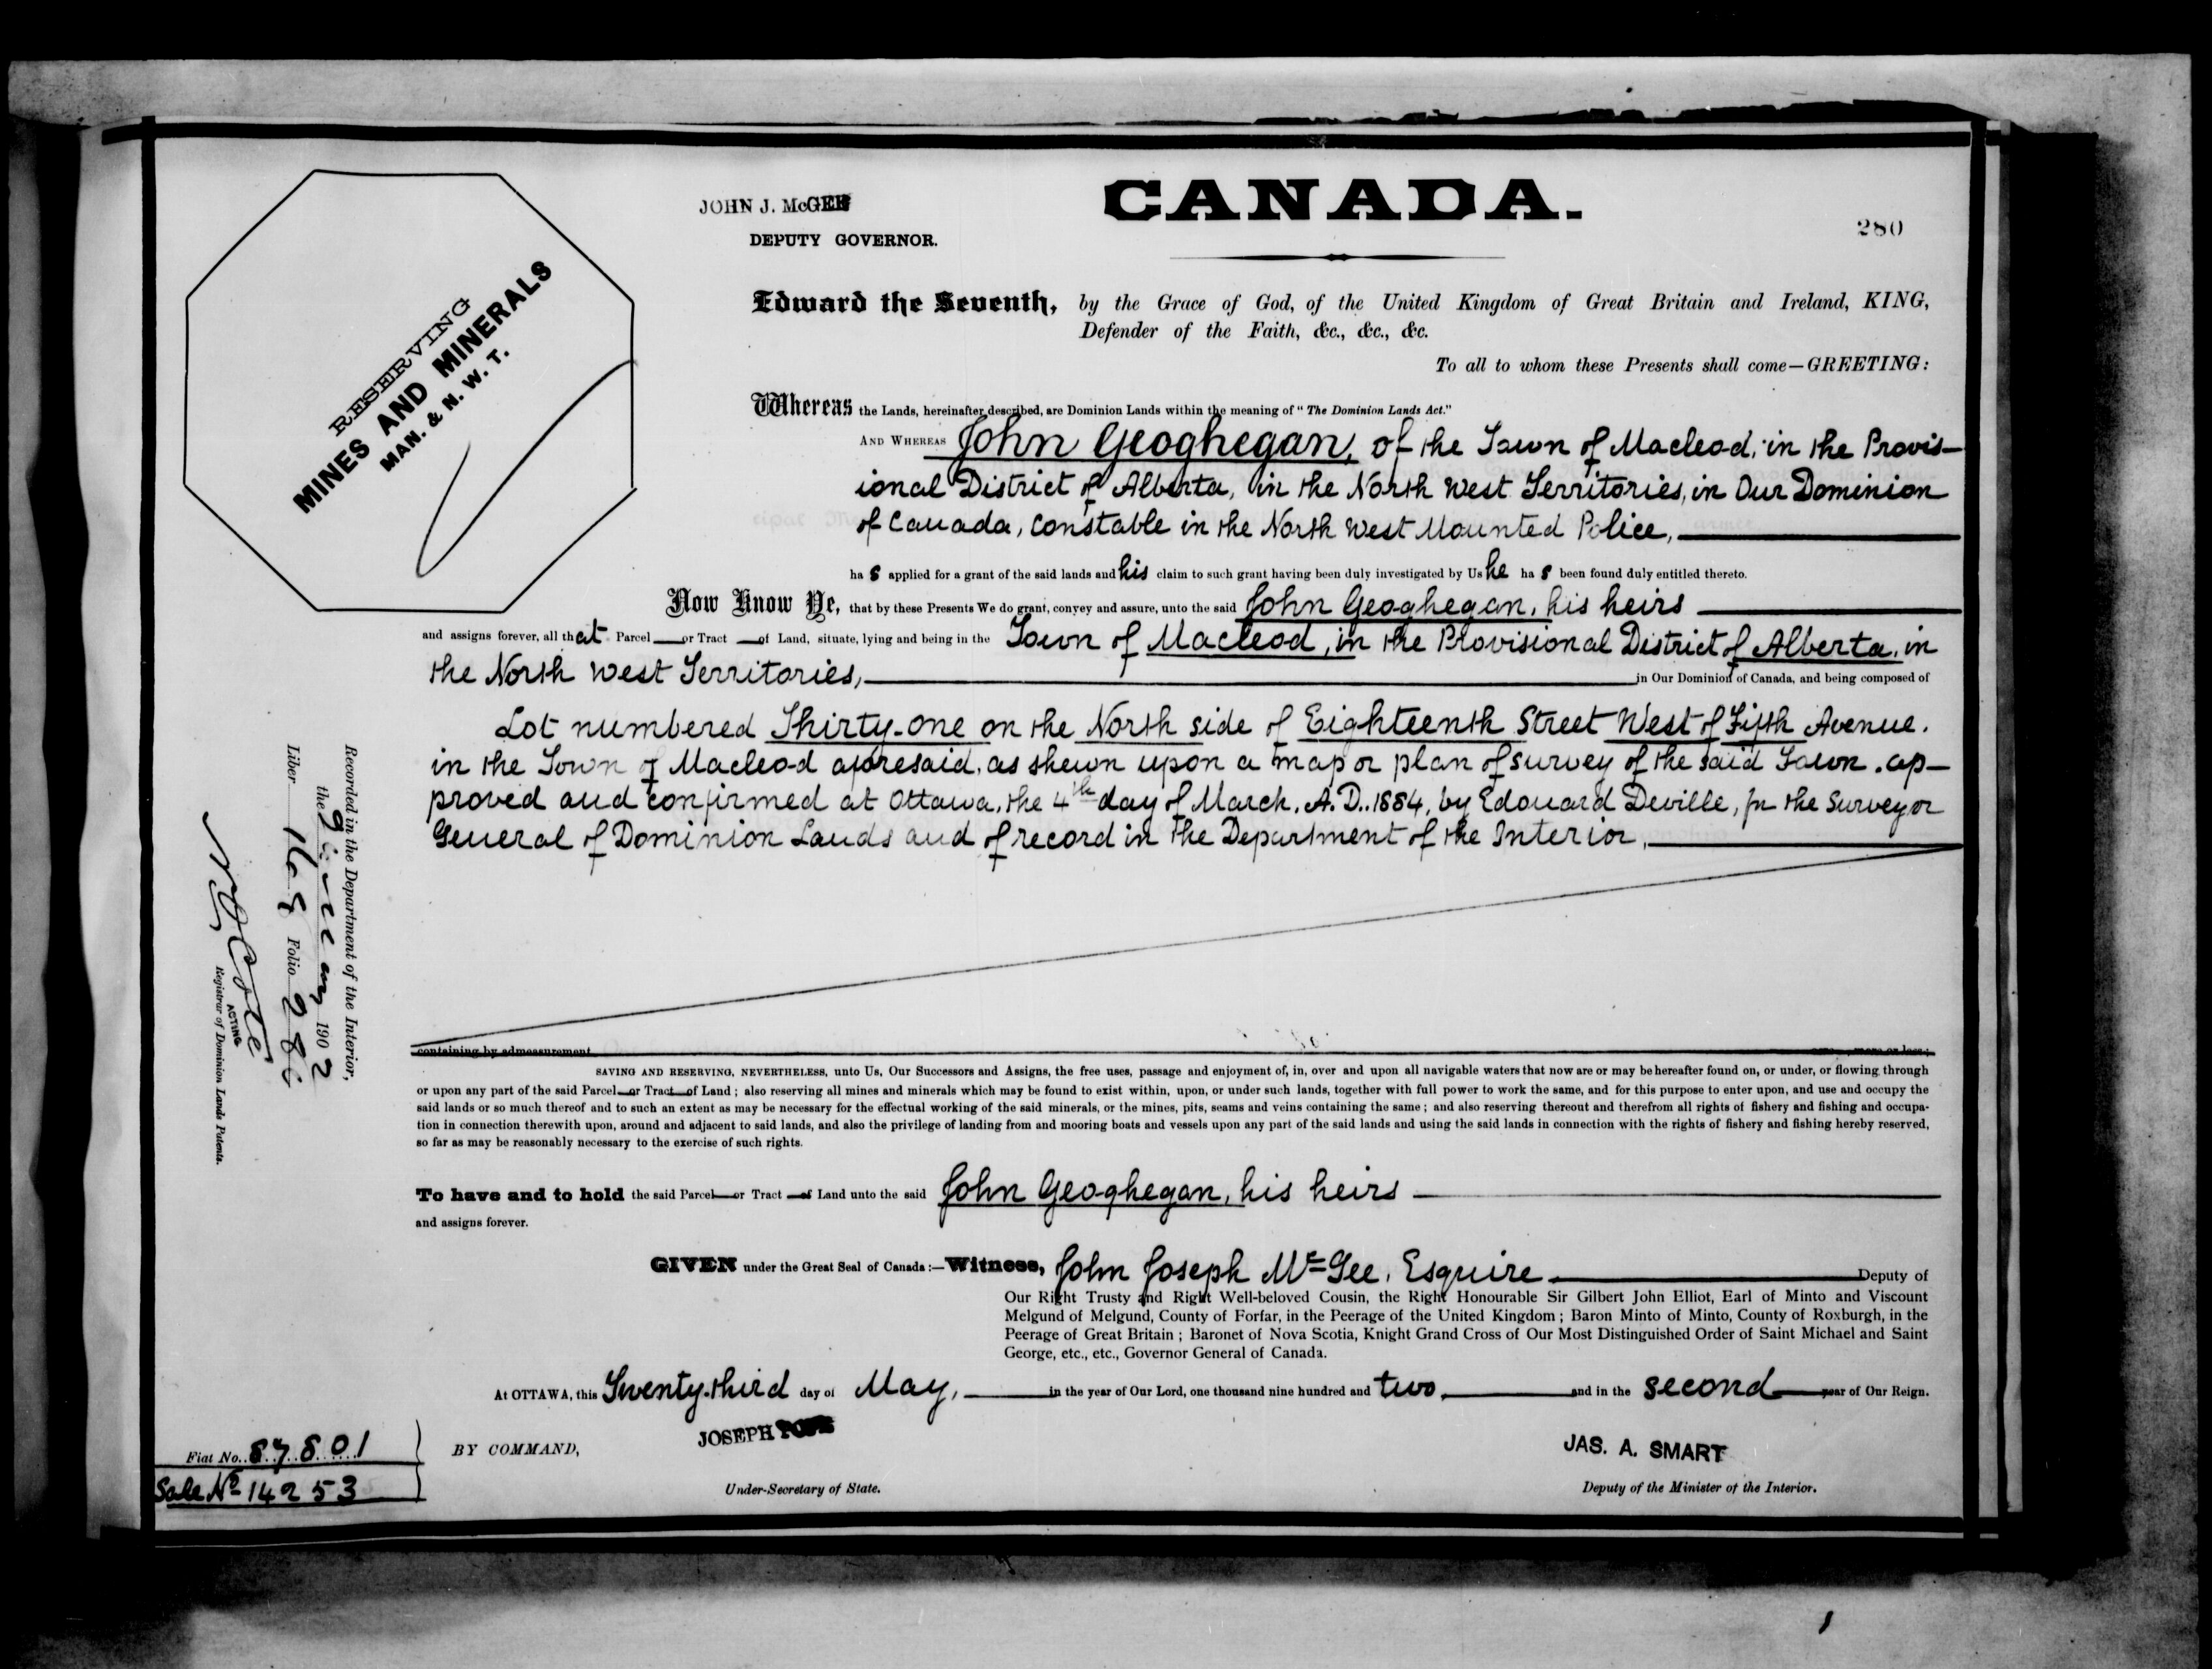 JOHN J. McGEE
DEPUTY GOVERNOR.
CANADA.
280
RESERVING
MINES AND MINERALS
MAN. & N. W. T.
Edward the Seventh, by the Grace of God, of the United Kingdom of Great Britain and Ireland, KING,
Defender of the Faith, &c., &c., &c.
To all to whom these Presents shall come—GREETING:
Whereas the Lands, hereinafter described, are Dominion Lands within the meaning of "The Dominion Lands Act."
AND WHEREAS John Geoghegan, of the Town of Macleod, in the Provis-
ional District of Alberta, in the North West Territories, in Our Dominion
of Canada, Constable in the North West Mounted Police,
ha s applied for a grant of the said lands and his claim to such grant having been duly investigated by Us he ha s been found duly entitled thereto.
Now Know Ye, that by these Presents We do grant, convey and assure, unto the said John Geoghegan, his heirs
and assigns forever, all that Parcel or Tract of Land, situate, lying and being in the Town of Macleod, in the Provisional District of Alberta, in
the North West Territories, in Our Dominion of Canada, and being composed of
Lot numbered Thirty-one on the North side of Eighteenth Street West of Fifth Avenue.
in the Town of Macleod aforesaid, as shewn upon a map or plan of survey of the said Town. ap-
proved and confirmed at Ottawa, the 4th day of March, A.D. 1884, by Edouard Deville, for the Surveyor
General of Dominion Lands and of record in the Department of the Interior,
containing by admeasurement more or less;
SAVING AND RESERVING, NEVERTHELESS, unto Us, Our Successors and Assigns, the free uses, passage and enjoyment of, in, over and upon all navigable waters that now are or may be hereafter found on, or under, or flowing through
or upon any part of the said Parcel or Tract of Land; also reserving all mines and minerals which may be found to exist within, upon, or under such lands, together with full power to work the same, and for this purpose to enter upon, and use and occupy the
said lands or so much thereof and to such an extent as may be necessary for the effectual working of the said minerals, or the mines, pits, seams and veins containing the same; and also reserving thereout and therefrom all rights of fishery and fishing and occupa-
tion in connection therewith upon, around and adjacent to said lands, and also the privilege of landing from and mooring boats and vessels upon any part of the said lands and using the said lands in connection with the rights of fishery and fishing hereby reserved,
so far as may be reasonably necessary to the exercise of such rights.
To have and to hold the said Parcel or Tract of Land unto the said John Geoghegan, his heirs
and assigns forever.
GIVEN under the Great Seal of Canada:—Witness, John Joseph McGee, Esquire Deputy of
Our Right Trusty and Right Well-beloved Cousin, the Right Honourable Sir Gilbert John Elliot, Earl of Minto and Viscount
Melgund of Melgund, County of Forfar, in the Peerage of the United Kingdom; Baron Minto of Minto, County of Roxburgh, in the
Peerage of Great Britain; Baronet of Nova Scotia, Knight Grand Cross of Our Most Distinguished Order of Saint Michael and Saint
George, etc., etc., Governor General of Canada.
At OTTAWA, this Twenty-third day of May, in the year of Our Lord, one thousand nine hundred and two, and in the second year of Our Reign.
BY COMMAND,
JOSEPH POPE
Under-Secretary of State.
JAS. A. SMART
Deputy of the Minister of the Interior.
Fiat No. 87801
Sale No 14253
Recorded in the Department of the Interior,
the 9 1902
Liber 169 Folio 286
N O Coté
ACTING
Registrar of Dominion Lands Patents.